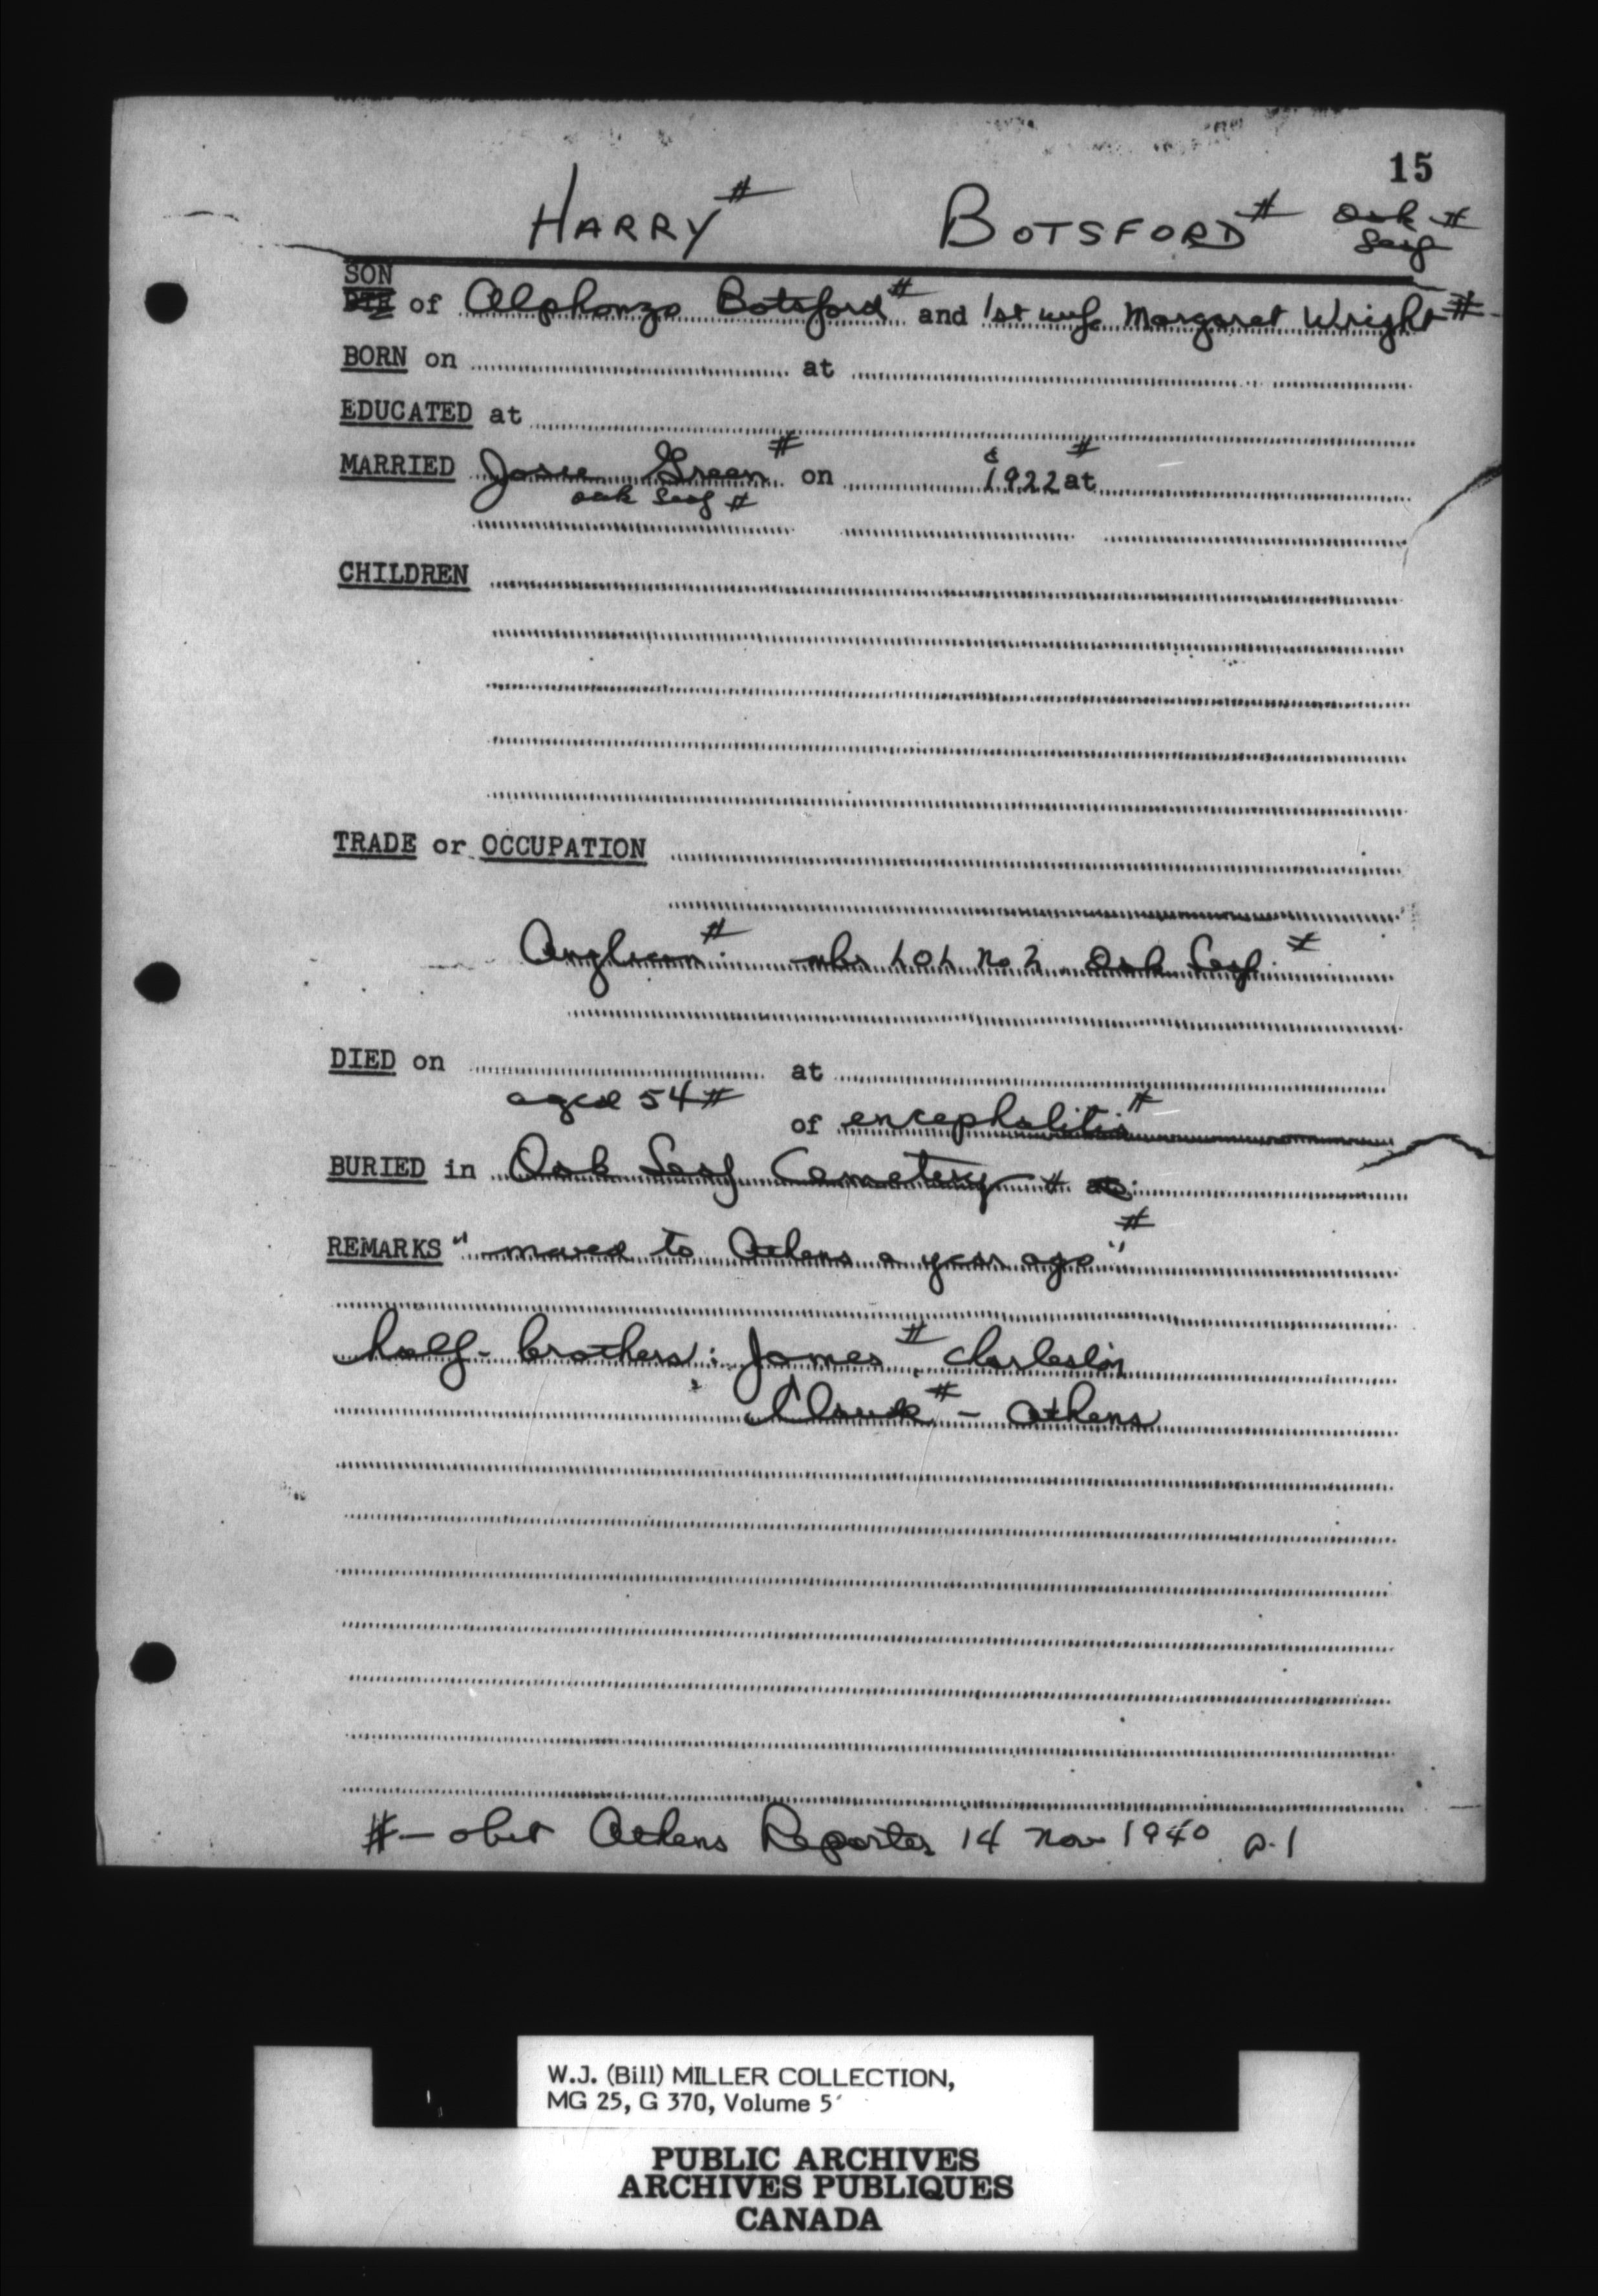 15
HARRY# BOTSFORD# Oak # Leaf
SON
DTR of Alphonzo Botsford# and 1st wife Margaret Wright#
BORN on at
EDUCATED at
MARRIED Josie Green# on c 1922# at
oak Leaf #
CHILDREN
TRADE or OCCUPATION
Anglican# mbr LOL no 2 Oak Leaf #
DIED on at
aged 54#
of encephalitis#
BURIED in Oak Leaf Cemetery # at
REMARKS "moved to Athens a year ago"#
half-brothers: James# Charleston
Claude# - Athens
# - obit Athens Reporter 14 Nov 1940 p.1
W.J. (Bill) MILLER COLLECTION,
MG 25, G 370, Volume 5
PUBLIC ARCHIVES
ARCHIVES PUBLIQUES
CANADA